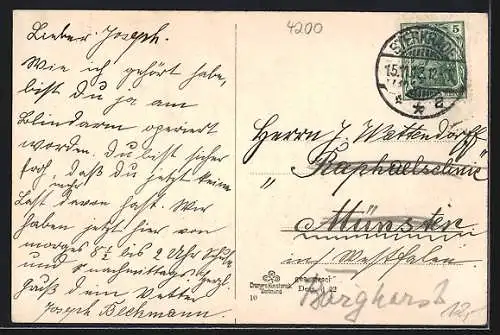 4200
Lieber Joseph.
Wie ich gehört habe,
bist Du ja am
Blindarm operiert
worden. Du bist sicher
froh, daß Du jetzt keine
Last mehr davon hast. Wir
haben jetzt hier von
morgens 8 1/2 bis 2 Uhr Schule
und nachmittags
Gruß Dein Vetter
Joseph Beckmann.
STERKRADE
15.11.12.12
* a
5
Herrn J. Wattendorff
" Raphaelsclinic "
Münster
in/Westfalen
Borghorst
Dortmund
10
12,-